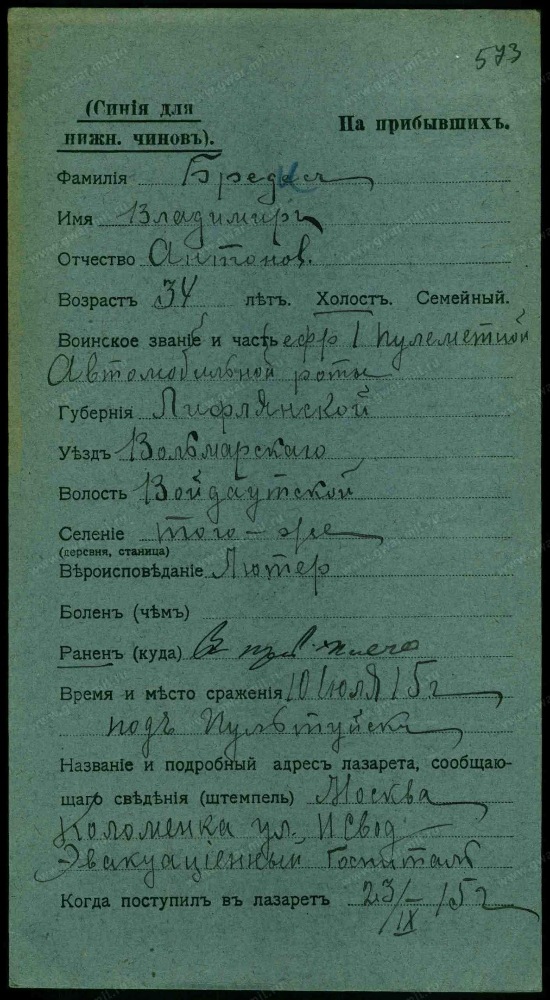 573
(Синія для
нижн. чиновъ).
На прибывшихъ.
Фамилія
Имя Владимиръ
Отчество Антонов.
Возрастъ 34 лѣтъ. Холостъ. Семейный.
Воинское званіе и часть ефр 1 пулеметной
Автомобильной роты
Губернія Лифлянской
Уѣздъ Вольмарскаго
Волость Войдаутской
Селеніе того-же
(деревня, станица)
Вѣроисповѣданіе Лютер
Боленъ (чѣмъ)
Раненъ (куда) В плечо
Время и мѣсто сраженія 10 Июля 15 г
подъ Пультуйска
Названіе и подробный адресъ лазарета, сообщаю-
щаго свѣдѣнія (штемпель) Москва
Коломенка ул., И Свод
Эвакуаціенный Госпиталь
Когда поступилъ въ лазаретъ 23/IX 15 г